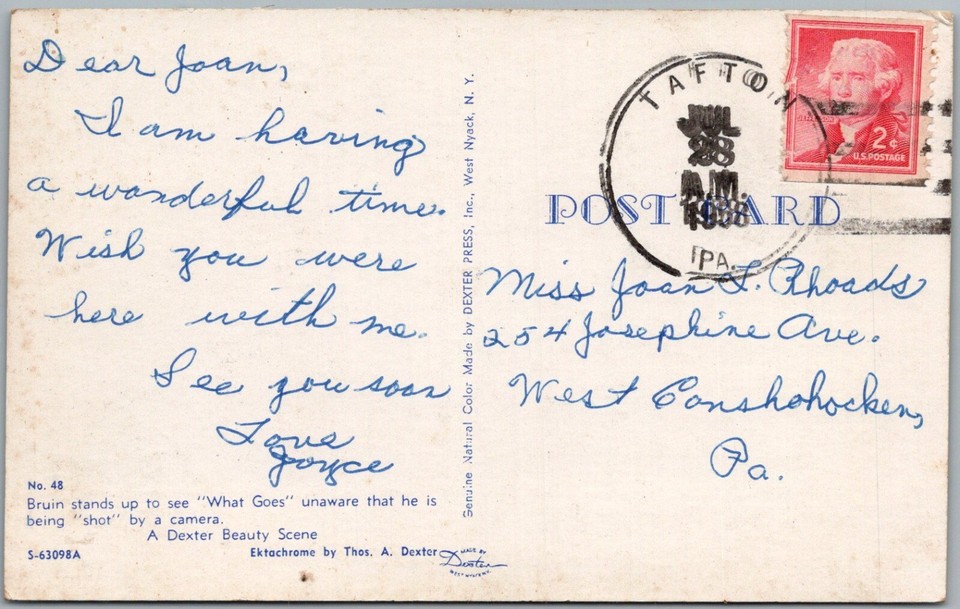 Dear Joan,
I am having
a wonderful time.
Wish you were
here with me.
See you soon
Love
Joyce
No. 48
Bruin stands up to see "What Goes" unaware that he is
being "shot" by a camera.
A Dexter Beauty Scene
S-63098A
Ektachrome by Thos. A. Dexter
MADE BY
Dexter
WEST NYACK, N.Y.
Genuine Natural Color Made by DEXTER PRESS, Inc., West Nyack, N. Y.
TAFTON
JUL
28
A.M.
1958
PA.
2¢
U.S. POSTAGE
POST CARD
Miss Joan L. Rhoads
254 Josephine Ave.
West Conshohocken,
Pa.